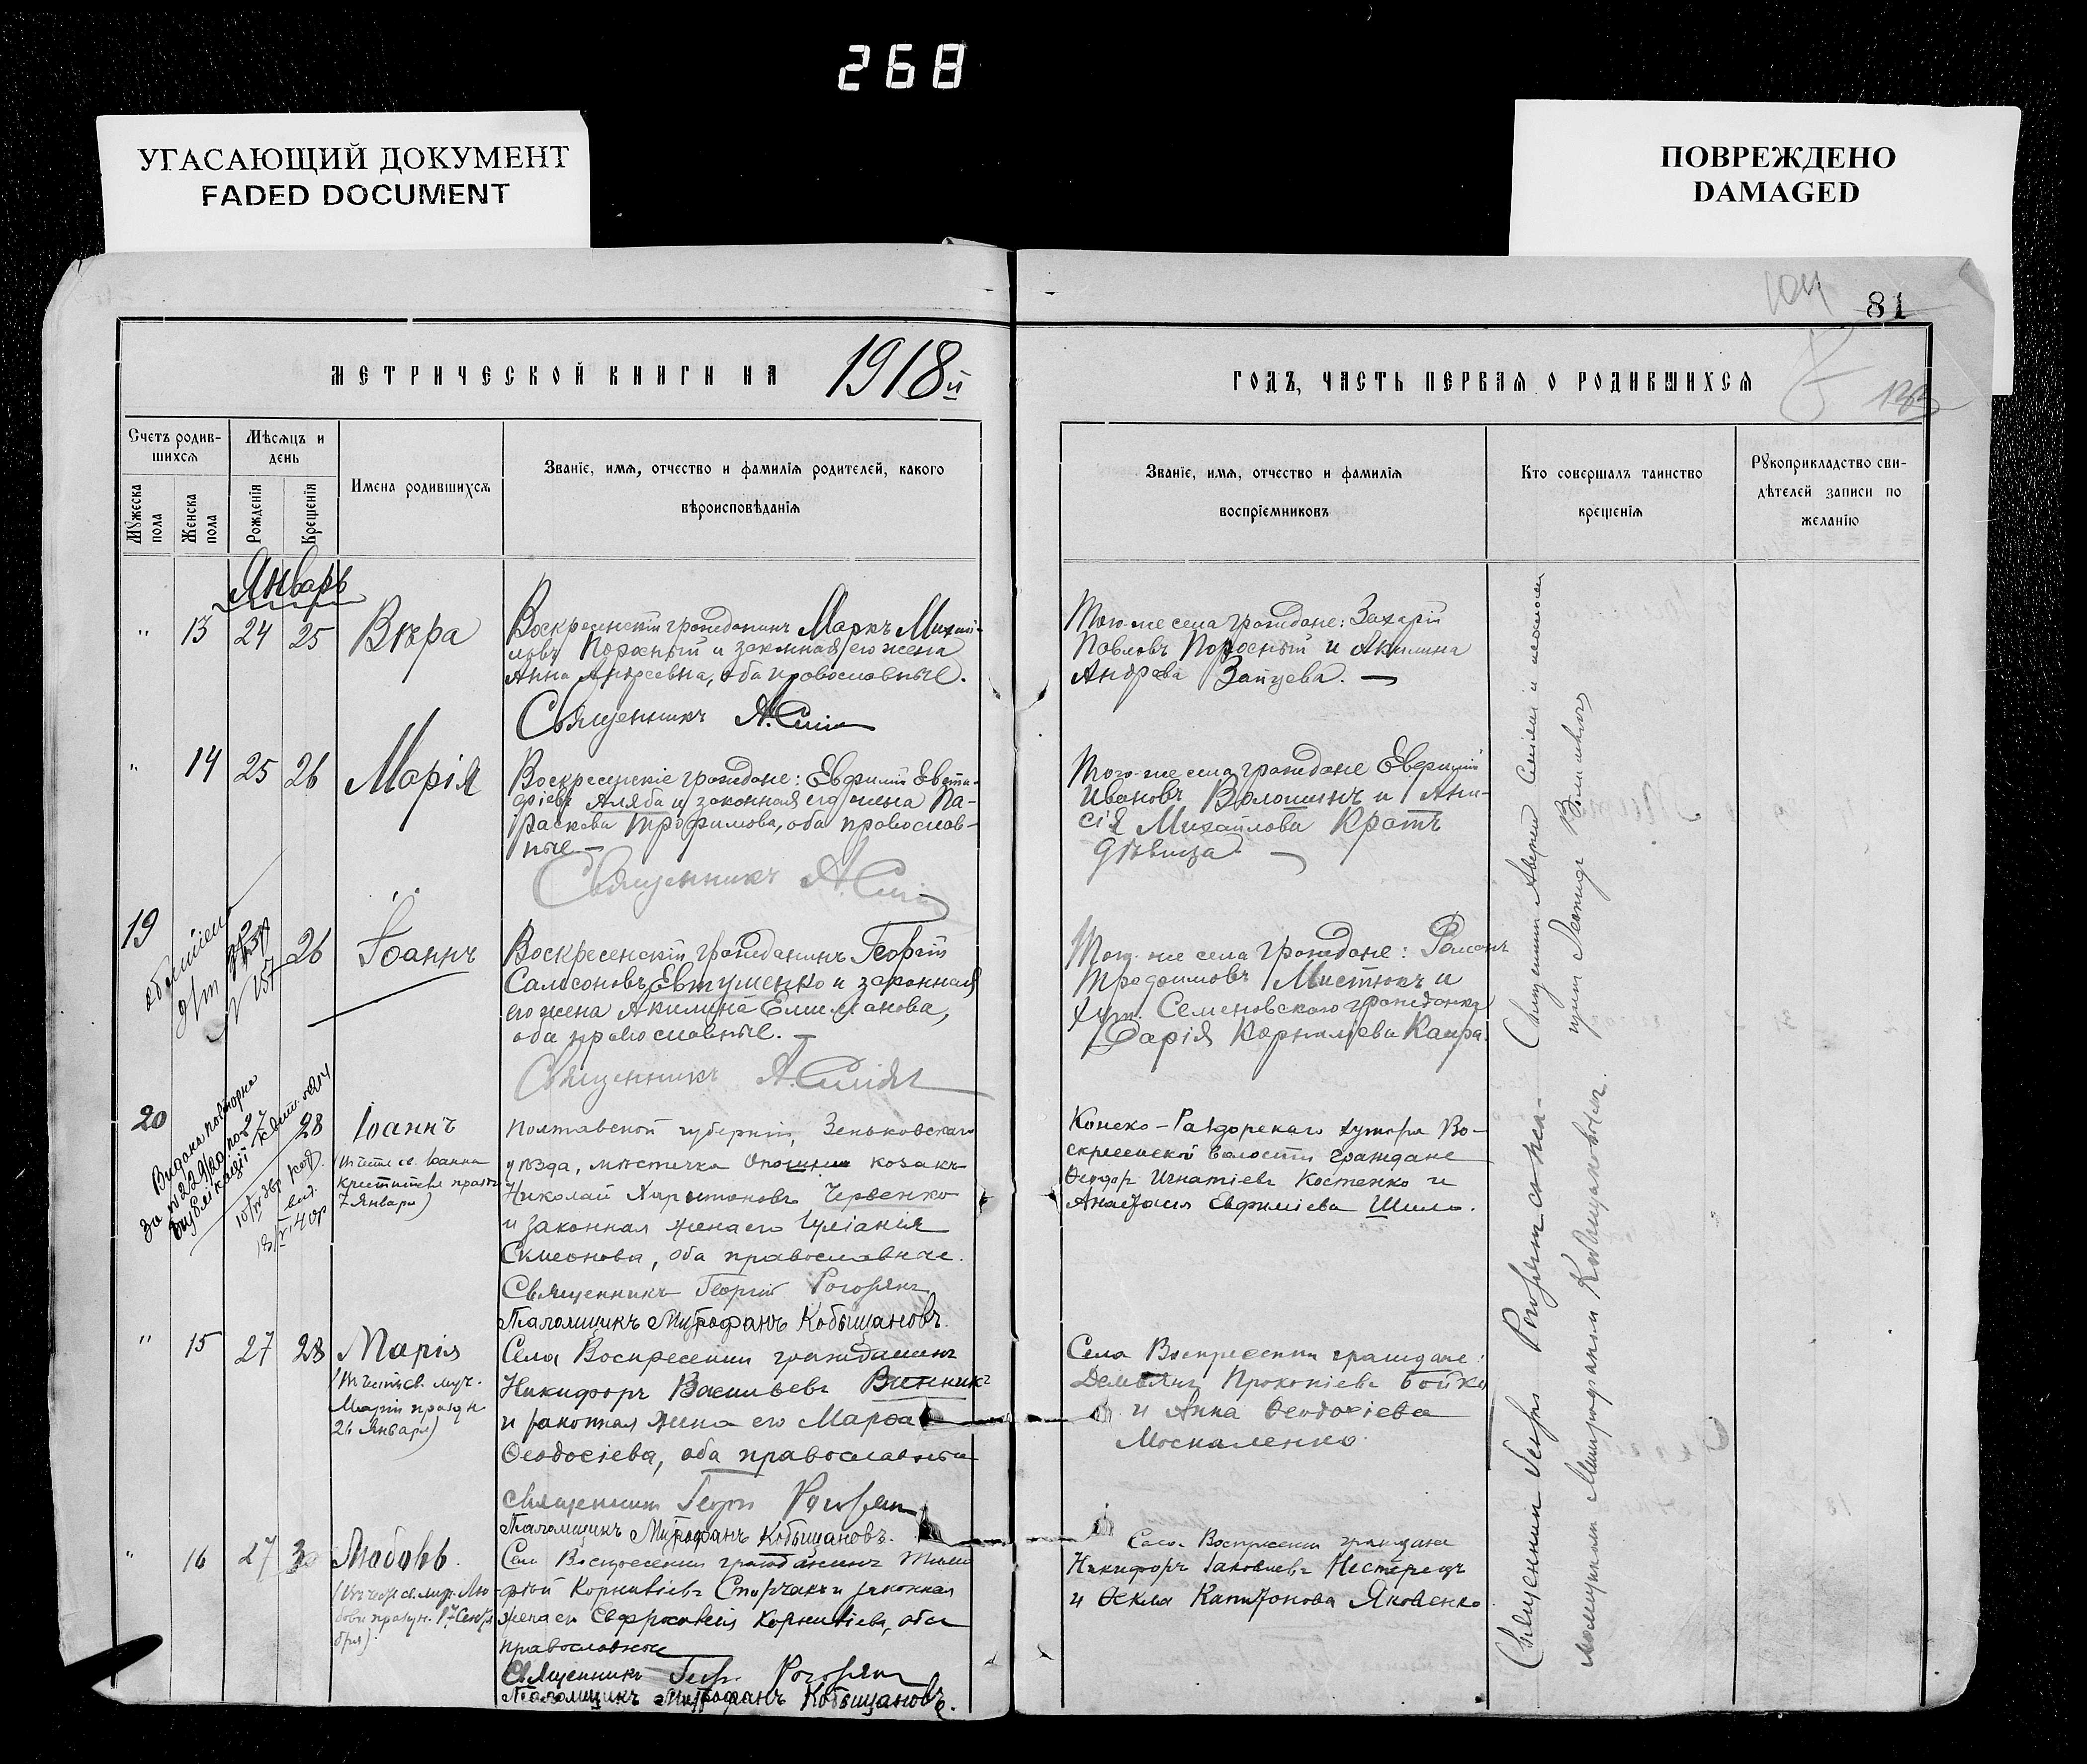 268
УГАСАЮЩИЙ ДОКУМЕНТ
FADED DOCUMENT
ПОВРЕЖДЕНО
DAMAGED
104
81
МЕТРИЧЕСКОЙ КНИГИ НА 1918й
ГОДЪ, ЧАСТЬ ПЕРВАЯ О РОДИВШИХСЯ
Счетъ родив-
шихся
Мѣсяцъ и
день
Мужеска
пола
Женска
пола
Рожденія
Крещенія
Имена родившихся
Званіе, имя, отчество и фамилія родителей, какого
вѣроисповѣданія
Званіе, имя, отчество и фамилія
воспріемниковъ
Кто совершалъ таинство
крещенія
Рукоприкладство сви-
дѣтелей записи по
желанію
Январь
" 13 24 25 Вѣра
Воскресенскій гражданинъ Маркъ Михаи-
ловъ Поросный и законная его жена
Анна Андреевна, оба православные.
Священникъ А.
Того-же села граждане: Захарій
Павловъ Поросный и Акилина
Андреева Зайцева.
" 14 25 26 Марія
Воскресенскіе граждане: Евфимій Евста-
фіевъ Аляба и законная его жена Па-
раскева Трофимова, оба православ-
ные
Священникъ А.
Того-же села граждане Евфимій
Ивановъ Волошинъ и Ани-
сія Михайлова Кротъ
дѣвица.
19 26 Іоаннъ
157
Воскресенскій гражданинъ Георгій
Самсоновъ Евтушенко и законная
его жена Акилина Емиліанова,
оба православные.
Священникъ А.
Того-же села граждане: Романъ
Трофимовъ Мистюкъ и
хут. Семеновскаго гражданка
Дарія Корниліева Каира.
20 27 28 Іоаннъ
(Въ честь св. Іоанна
крестителя празд.
7 Января)
Видана повторна
Полтавской губерніи, Зеньковскаго
уѣзда, мѣстечка Опошни козакъ
Николай Харитоновъ Червенко
и законная жена его Іуліанія
Симеонова, оба православные.
Священникъ Георгій
Псаломщикъ Митрофанъ Кобыщановъ.
Конско-Раздорскаго хутора Во-
скресенской волости граждане
Ѳеодоръ Игнатіевъ Костенко и
Анастасія Евфиміева Шило.
" 15 27 28 Марія
(Въ честь св. муч.
Маріи праздн.
26 Января)
Села Воскресенки гражданинъ
Никифоръ Васильевъ Винникъ
и законная жена его Марѳа
Ѳеодосіева, оба православные
Священникъ Георгій
Псаломщикъ Митрофанъ Кобыщановъ.
Села Воскресенки граждане:
Демьянъ Прокопіевъ Бойко
и Анна Ѳеодосіева
Москаленко.
" 16 27 30 Любовь.
(Въ честь св. муч. Лю-
бови праздн. 17 Сентя-
бря).
Села Воскресенки гражданинъ Тимо-
фей Корниліевъ Сторчакъ и законная
жена его Евфросинія Корниліева, оба
православные
Священникъ Георг.
Псаломщикъ Митрофанъ Кобыщановъ.
Села Воскресенки граждане
Никифоръ Іаковлевъ Нестерецъ
и Ѳекла Капитонова Яковенко
Священникъ Георгій
псаломщикомъ Митрофаномъ Кобыщановымъ.